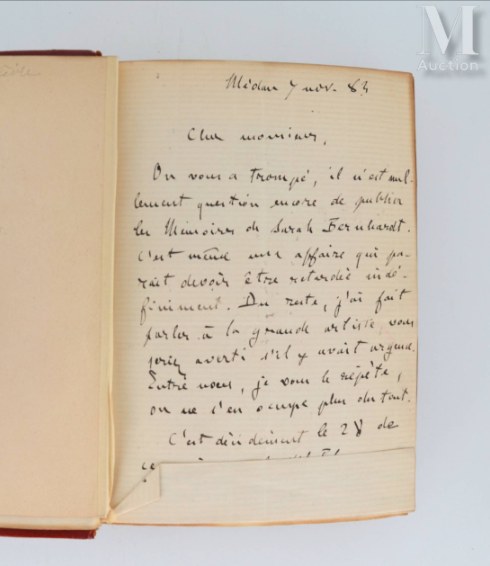 M
Auction
Médan 7 nov. 83
Cher monsieur,
On vous a trompé, il n'est nul-
lement question encore de publier
les Mémoires de Sarah Bernhardt.
C'est même une affaire qui pa-
rait devoir être retardée indé-
finiment. Du reste, j'ai fait
parler à la grande artiste, vous
seriez averti s'il y avait urgence.
Entre nous, je vous le répète,
on ne s'en occupe plus du tout.
C'est décidément le 28 de
ce